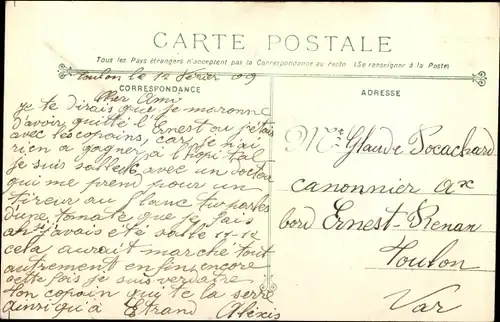 CARTE POSTALE
Tous les Pays étrangers n'acceptent pas la Correspondance au recto (Se renseigner à la Poste)
Toulon le 12 Février 09
CORRESPONDANCE
Cher Ami
je te dirais que je maronne
d'avoir quitté l'Ernest ou j'étais
avec les copains, car je n'ai
rien a gagner, à l'hopital
je suis salle avec un docteur
qui me prend pour un
tireur au flanc tu parles
d'une tomate que je fais
si j'avais été salle 11-12
cela aurait marché tout
autrement enfin, encore
cette fois je suis
ton copain qui te la serre
ainsi qu'à Etrand Alexis
ADRESSE
Mr Glaude Pocachard
canonnier ax
bord Ernest-Renan
Toulon
Var